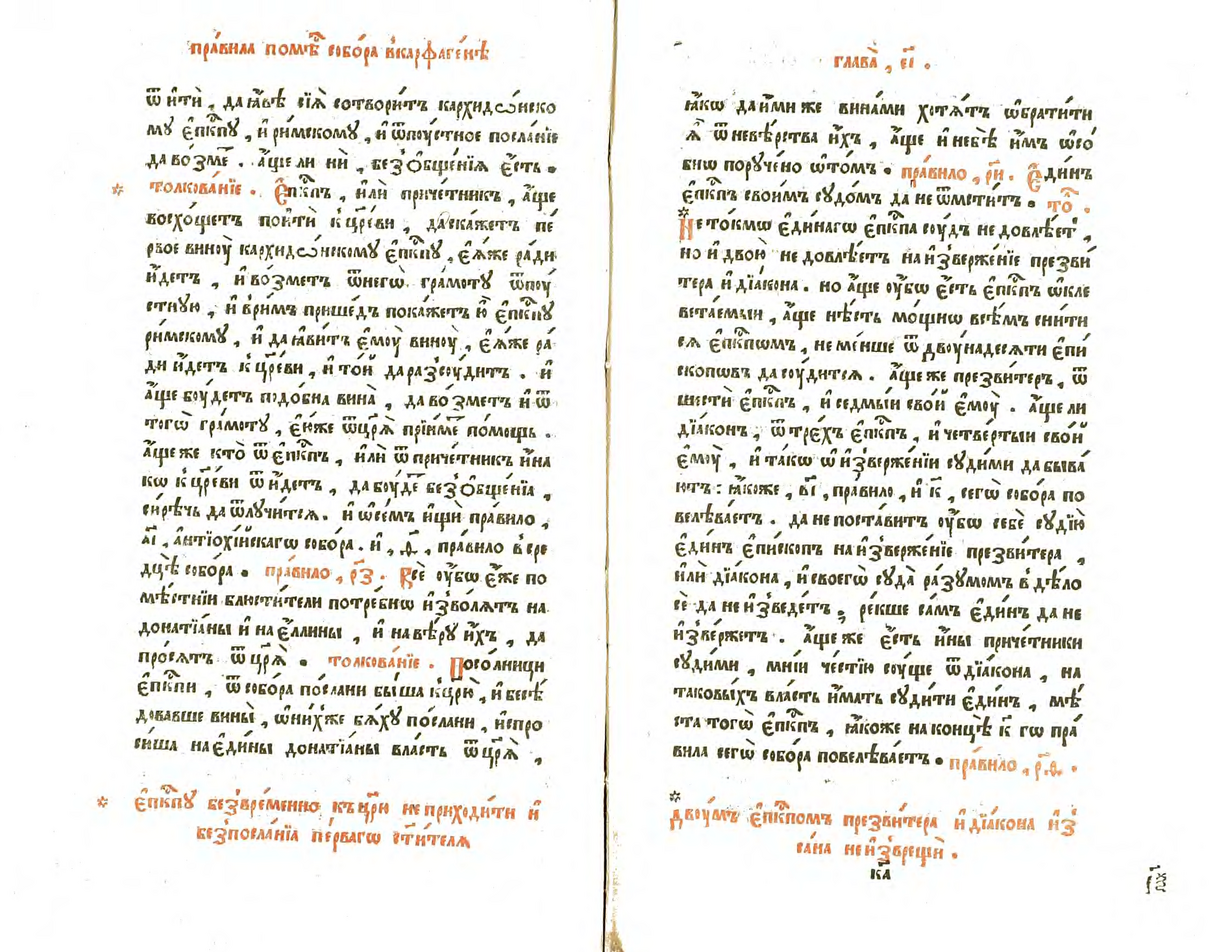 пра́вила помѣ́ стⷩ҇ собо́ра в̾карѳаге́нѣ
ѿитѝ , да ꙗ҆́вѣ сїѧ̀ сотвори́тъ кархидѡ́нско
му є҆пⷭ҇кпу , и҆ ри́мскому , и҆ ѿпоу́стное посла́нїе
да во́змеⷮ . а҆́ще ли нѝ , без̾ѻ҆бще́нїѧ є҆́сть .
* толкова́нїе . Є҆пⷭ҇кпъ , и҆лѝ приче́тникъ , а҆́ще
восхо́щетъ поитѝ к̾цр҃еви , да ска́жетъ пе́
рвое виноу̀ кархидѡ́нскому є҆пⷭ҇кпу , є҆ѧ́же ра́ди
и҆́детъ , и҆ во́зметъ ѿнегѡ̀ гра́мотꙋ ѿпоу́
стную , и҆ в̾ри́мъ прише́дъ пока́жетъ ю҆̀ є҆пⷭ҇кпу
ри́мскому , и҆ да ꙗ҆́витъ є҆моу̀ виноу̀ , є҆ѧ́же ра́
ди и҆́детъ к̾цр҃еви , и҆ то́й да раз̾соу́дитъ . и҆
а҆́ще боу́детъ подо́бна вина̀ , да во́зметъ и҆ ѿ
тогѡ̀ гра́мотꙋ , є҆ю́же ѿцр҃ѧ̀ прїи́меⷮ по́мощь .
а҆́ще же кто̀ ѿ є҆пⷭ҇кпъ , и҆лѝ ѿ приче́тникъ и҆́на
кѡ к̾цр҃еви ѿи́детъ , да боу́деⷮ без̾ѻ҆бще́нїа ,
си́рѣчь да ѿлучи́тсѧ . и҆ ѡ҆се́мъ и҆щѝ пра́вило ,
а҃і , а҆нтїохі́йскагѡ собо́ра . и҆ , ѳ҃ , пра́вило в̾сре
дцѣ собо́ра . пра́вило , р҃з . Всѐ оу҆́бѡ є҆́же по
мѣ́стнїи блюсти́тели потре́бнѡ и҆з̾во́лѧтъ на
донатїа́ны и҆ на є҆́ллины , и҆ на вѣ́рꙋ и҆́хъ , да
про́сѧтъ ѿ цр҃ѧ̀ . толкова́нїе . Посо́лницы
є҆пⷭ҇кпи , ѿ собо́ра по́слани бы́ша к̾цр҃ю̀ , и҆ бесѣ́
довавше вины̀ , ѡ҆ни́хже бѧ́ху по́слани , и҆спро
си́ша на є҆ди́ны донатїа́ны вла́сть ѿ цр҃ѧ̀ ,
* є҆пⷭ҇кпу без̾вре́менно къ цр҃ю не приходи́ти и҆
без̾посла́нїа пе́рвагѡ ст҃и́телѧ
глава̀ , є҃і .
ꙗ҆́кѡ да и҆́ми же вина́ми хотѧ́тъ ѡ҆брати́ти
ѧ҆̀ ѿневѣ́рства и҆́хъ , а҆́ще и҆ не бѣ̀ и҆̀мъ ѡ҆со́
бнѡ пору́чено ѡ҆то́мъ . пра́вило , р҃и . Є҆ди́нъ
є҆пⷭ҇кпъ свои́мъ судо́мъ да не ѿмсти́тъ . тоⷧ҇ .
* Не то́кмѡ є҆ди́нагѡ є҆пⷭ҇кпа соу́дъ не довлѣ́етъ ,
но и҆ двою̀ не довлѣ́етъ на и҆з̾верже́нїе презви́
тера и҆ дїа́кона . но а҆́ще оу҆́бѡ є҆́сть є҆пⷭ҇кпъ ѡ҆кле
вета́емыи , а҆́ще нѣ́сть мо́щнѡ всѣ́мъ сни́ти
сѧ є҆пⷭ҇кпѡмъ , не ме́нше ѿ двоу́надесѧти є҆пи́
скоповъ да соу́дитсѧ . а҆́ще же презви́теръ , ѿ
шестѝ є҆пⷭ҇кпъ , и҆ седмы́и сво́й є҆моу̀ . а҆́ще ли
дїа́конъ , ѿ тре́хъ є҆пⷭ҇кпъ , и҆ четве́ртыи сво́й
є҆моу̀ , и҆ та́кѡ ѡ҆ и҆з̾верже́нїи суди́ми да быва́
ютъ : ꙗ҆́коже , в҃і , пра́вило , и҆ к҃ , сегѡ̀ собо́ра по
велѣва́етъ . да не поста́витъ оу҆́бѡ себѐ судїю̀
є҆ди́нъ є҆пи́скопъ на и҆з̾верже́нїе презви́тера ,
и҆лѝ дїа́кона , и҆ своегѡ̀ суда̀ ра́зумомъ в̾дѣ́ло
сѐ да не и҆з̾веде́тъ , ре́кше са́мъ є҆ди́нъ да не
и҆з̾ве́ржетъ . а҆́ще же є҆́сть и҆́ны приче́тники
суди́ми , мні́и че́стїю соу́ще ѿ дїа́кона , на
таковы́хъ вла́сть и҆́мать суди́ти є҆ди́нъ , мѣ́
ста тогѡ̀ є҆пⷭ҇кпъ , ꙗ҆́коже на концѣ̀ к҃ гѡ пра́
вила сегѡ̀ собо́ра повелѣва́етъ . пра́вило , р҃ѳ .
* двоу́мъ є҆пⷭ҇кпомъ презви́тера и҆ дїа́кона и҆з̾
са́на не и҆з̾врещѝ .
к҃а